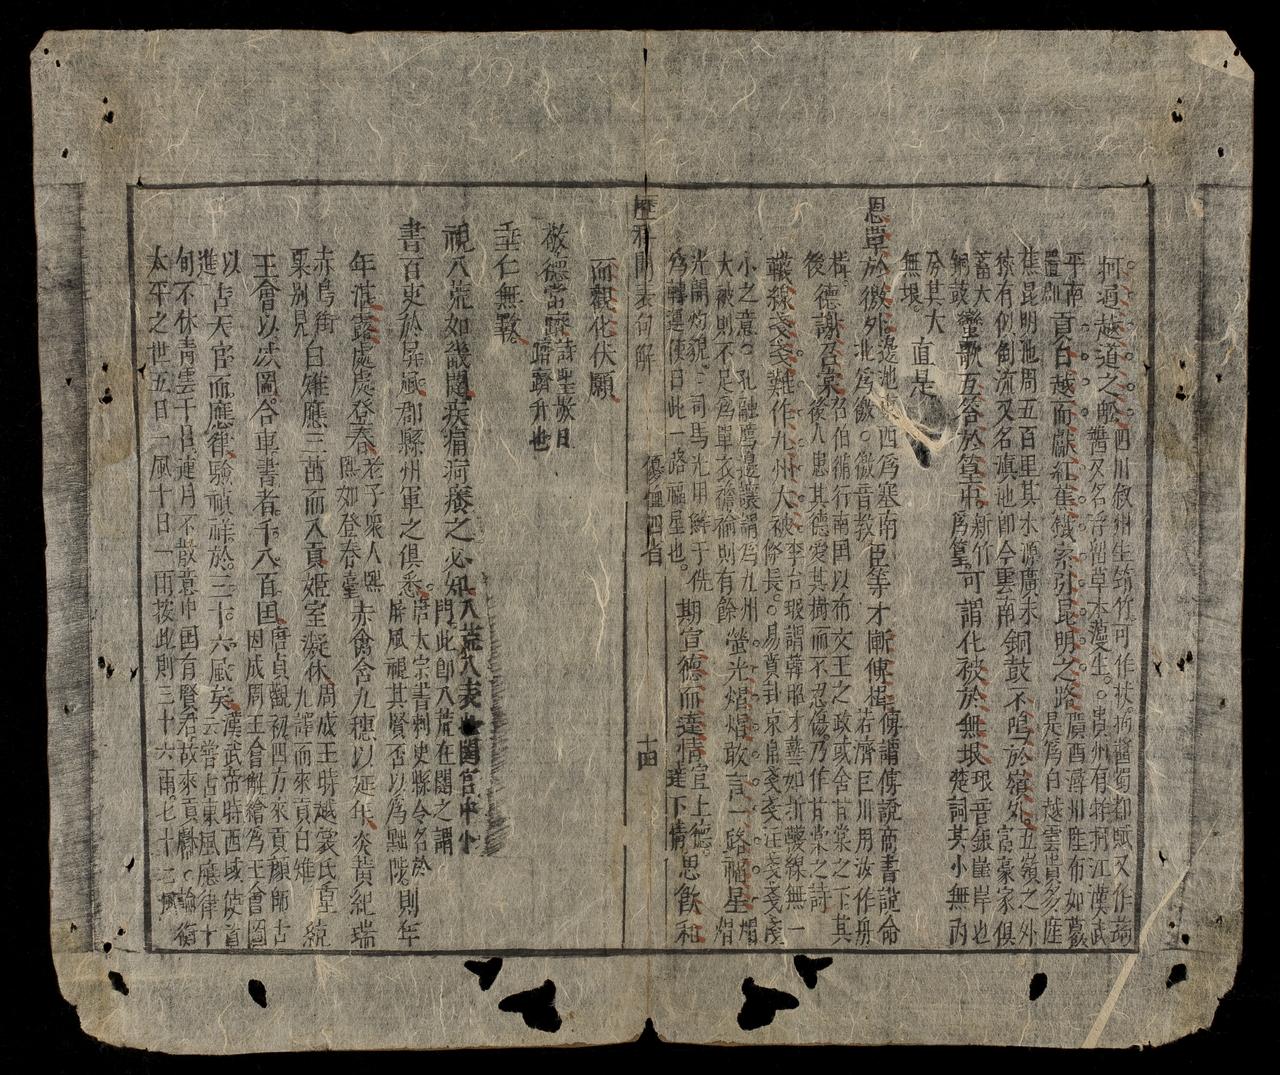 柯通越道之
四川敘州生筇竹可作扶
蜀都賦又作
又名浮留草木蔓生貴州有牂牁江漢武
平南
貢白越而獻紅蕉鐵索引昆明之路
是為白越雲貴多産
蕉昆明池周五百里其水源廣末
狹有似倒流又名滇池即今雲南
銅鼓不鳴於嶺外
五嶺之外
富豪家俱
蓄大
銅鼓
蠻歌互答於篁中
新竹
為篁
可謂化被於無垠
垠音銀崖岸也
楚詞其小無內
兮其大
無垠
直是
恩覃於徼外
邊池
西為塞南
北為徼
徼音教
臣等才慚傅楫
傅謂傅說商書說命
若濟巨川用汝作舟
楫
德謝召棠
召伯循行南国以布文王之政或舍甘棠之下其
後
後人思其德愛其樹而不忍傷乃作甘棠之詩
韈線戔戔難作九州大被
李台瑕謂韓昭才藝如拆韈線無一
條長
易賁卦束帛戔戔注戔戔淺
小之意
孔融薦邊讓謂為九州
大被則不足為單衣襜褕則有餘
螢光熠熠敢言一路福星
熠
光
司馬光用鮮于侁
為轉運使曰此一路福星也
期宣德而達情
宣上德
達下情
思飲和
而觀化伏願
敬德常躋
詩聖敬日
躋躋升也
垂仁無斁
視八荒如畿闥疾痛痾癢之必知
八荒八表也闥宮中小
門此即八荒在闥之謂
書百吏於屏風郡縣州軍之俱悉
唐太宗書刺史縣令名於
屏風視其賢否以為黜陟
則年
年湛露處處登春
老子衆人熙
熙如登春臺
赤禽含九穗以延年
炎黃紀瑞
赤烏銜
粟別見
白雉應三苗而入貢姬室凝休
周成王時越裳氏重
九譯而來貢白雉
統
王會以決圖合車書者千八百国
唐貞觀初四方來貢顏師古
因成周王會解繪為王會圖
以占天官而應律驗禎祥於三十六風矣
漢武帝時西域使者
進
云嘗占東風應律十
旬不休青雲干呂連月不散意中国有賢君故來貢獻
論衡
太平之世五日一風十日一雨按此則三十六雨七十二風
表句解
十四